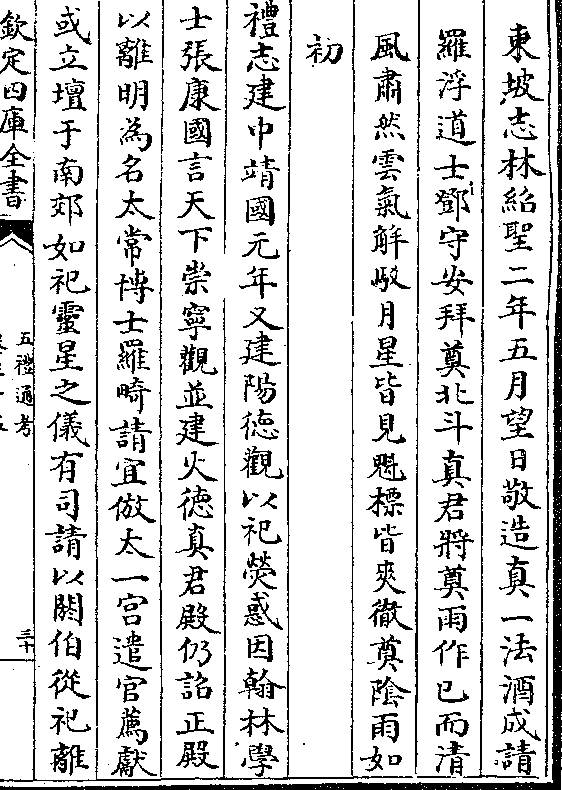 東坡志林紹聖二年五月望日敬造真一法酒成請
羅浮道士鄧守安拜奠北斗真君將奠雨作已而清
風肅然雲氣解駮月星皆見魁標皆爽徹奠陰雨如
初
禮志建中靖國元年又建陽徳觀以祀熒惑因翰林學
士張康國言天下崇寧觀並建火德真君殿仍詔正殿
以離明為名太常博士羅畸請宜倣太一宮遣官薦獻
或立壇于南郊如祀靈星之儀有司請以閼伯從祀離
欽定四庫全書
五禮通考
三十